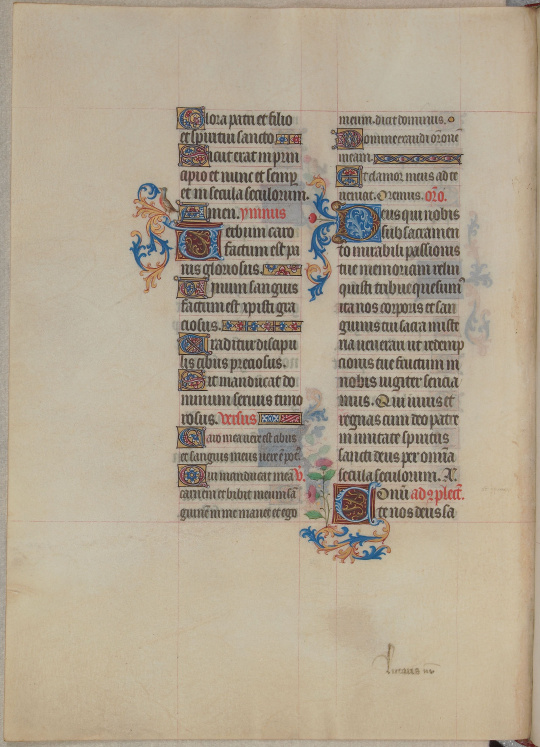 Glora patri et filio
et spiritui sancto.
Sicut erat in prin
cipio et nunc et semp
et in secula seculorum.
Amen. ymnus
Verbum caro
factum est pa
nis gloriosus.
Vinum sanguis
factum est xpisti gra
ciosus.
Traditur discipu
lis cibus preciosus.
Sit manducat do
minum seruis timo
rosus. Versus
Caro mea vere est cibus
et sanguis meus vere e pot9.
Qui manducat mea V.
carnem et bibit meum sa
guinem in me manet et ego
meum. dicit dominus.
Domine exaudi oronē
meam.
Et clamor meus ad te
veniat. Oremus. oro.
Deus qui nobis
sub sacramen
to mirabili passionis
tue memoriam relin
quisti tribue quesum9
ita nos corporis et san
guinis tui sacra miste
ria venerari ut redemp
cionis tue fructum in
nobis iugiter sencia
mus. Qui viuis et
regnas cum deo patre
in unitate spiritus
sancti deus per omnia
secula seculorum. R.
ad 9plect.
te nos deus sa